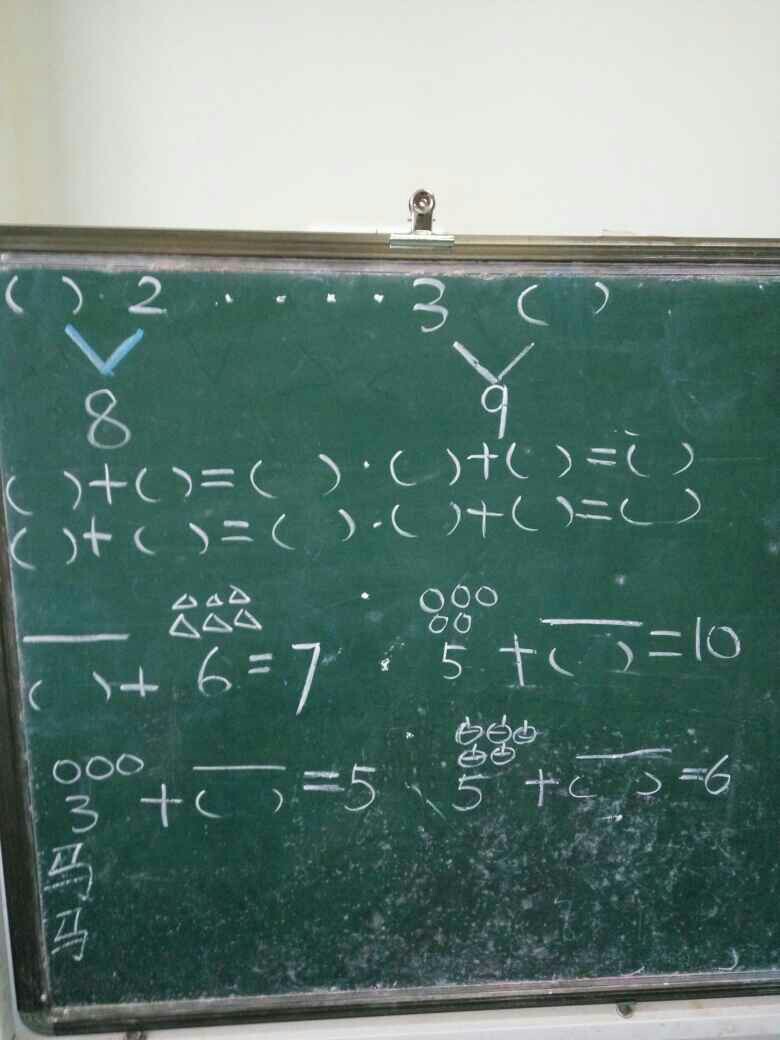 ( ) 2 · · · · 3 ( )
8 9
( )+( )=( ) · ( )+( )=( )
( )+( )=( ) · ( )+( )=( )
( )+ 6=7 · 5 +( )=10
3 +( )=5 · 5 +( )=6
马
马